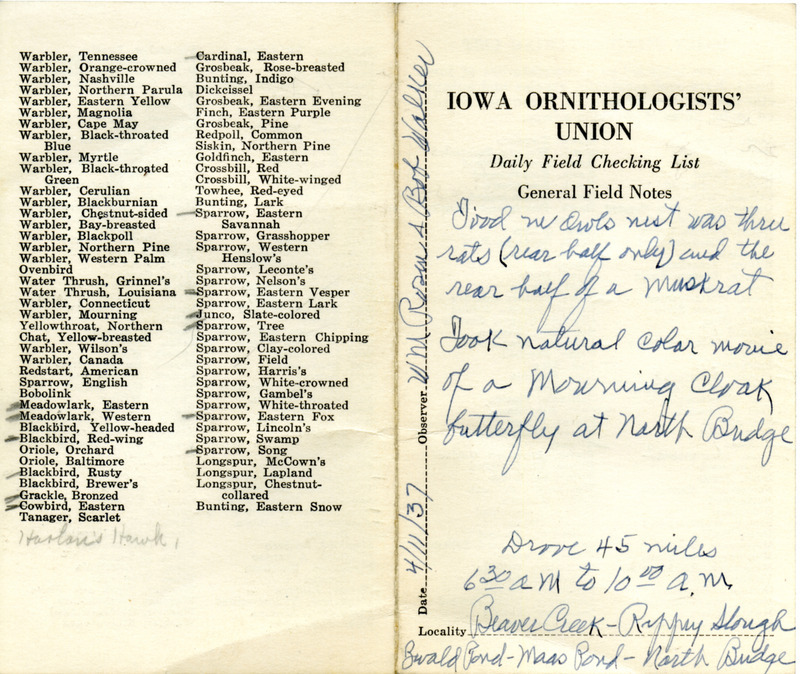 Warbler, Tennessee
Warbler, Orange-crowned
Warbler, Nashville
Warbler, Northern Parula
Warbler, Eastern Yellow
Warbler, Magnolia
Warbler, Cape May
Warbler, Black-throated
Blue
Warbler, Myrtle
Warbler, Black-throated
Green
Warbler, Cerulian
Warbler, Blackburnian
Warbler, Chestnut-sided
Warbler, Bay-breasted
Warbler, Blackpoll
Warbler, Northern Pine
Warbler, Western Palm
Ovenbird
Water Thrush, Grinnel's
Water Thrush, Louisiana
Warbler, Connecticut
Warbler, Mourning
Yellowthroat, Northern
Chat, Yellow-breasted
Warbler, Wilson's
Warbler, Canada
Redstart, American
Sparrow, English
Bobolink
Meadowlark, Eastern
Meadowlark, Western
Blackbird, Yellow-headed
Blackbird, Red-wing
Oriole, Orchard
Oriole, Baltimore
Blackbird, Rusty
Blackbird, Brewer's
Grackle, Bronzed
Cowbird, Eastern
Tanager, Scarlet
Harlan's Hawk,
Cardinal, Eastern
Grosbeak, Rose-breasted
Bunting, Indigo
Dickcissel
Grosbeak, Eastern Evening
Finch, Eastern Purple
Grosbeak, Pine
Redpoll, Common
Siskin, Northern Pine
Goldfinch, Eastern
Crossbill, Red
Crossbill, White-winged
Towhee, Red-eyed
Bunting, Lark
Sparrow, Eastern
Savannah
Sparrow, Grasshopper
Sparrow, Western
Henslow's
Sparrow, Leconte's
Sparrow, Nelson's
Sparrow, Eastern Vesper
Sparrow, Eastern Lark
Junco, Slate-colored
Sparrow, Tree
Sparrow, Eastern Chipping
Sparrow, Clay-colored
Sparrow, Field
Sparrow, Harris's
Sparrow, White-crowned
Sparrow, Gambel's
Sparrow, White-throated
Sparrow, Eastern Fox
Sparrow, Lincoln's
Sparrow, Swamp
Sparrow, Song
Longspur, McCown's
Longspur, Lapland
Longspur, Chestnut-
collared
Bunting, Eastern Snow
Date 4/11/37 Observer Wm Rosene & Bob Walker
IOWA ORNITHOLOGISTS'
UNION
Daily Field Checking List
General Field Notes
Food in Owls nest was three
rats (rear half only) and the
rear half of a Muskrat
Took natural color movie
of a Mourning Cloak
butterfly at North Bridge
Drove 45 miles
6 30 a M to 10 00 a.m.
Locality Beaver Creek - Rippey Slough
Ewald Pond - Maas Pond - North Bridge